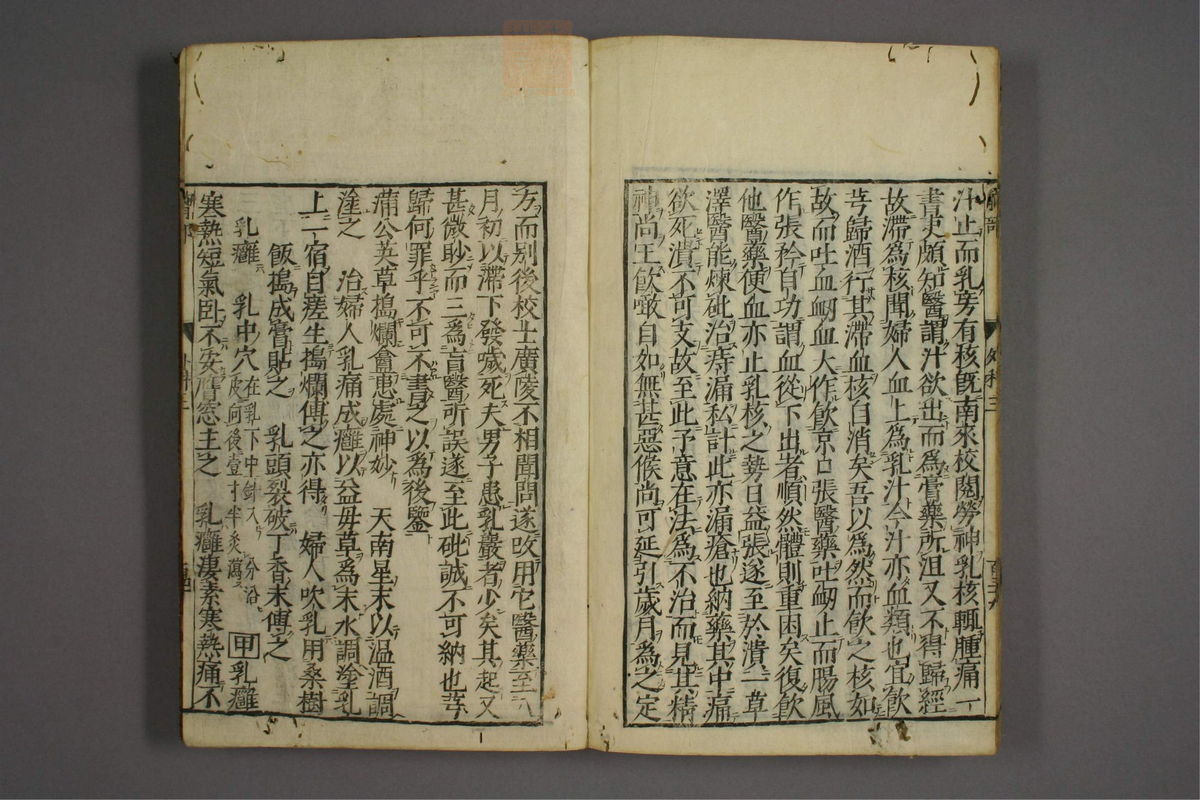 汁止而乳旁有核既南來校閱勞神乳核輒腫痛一
書史頗知醫謂汁欲出而爲膏藥所沮又不得歸經
故滯爲核聞婦人血上爲乳汁今汁亦血類也宜飲
芎歸酒行其滯血核自消矣吾以爲然而飲之核如
故而吐血衂血大作飲京口張醫藥吐衂止而腸風
作張矜自功謂血從下出者順然體則重困矣復飲
他醫藥便血亦止乳核之勢日益張遂至於潰一草
澤醫能煉砒治痔漏私計此亦漏瘡也納藥其中痛
欲死潰不可支故至此予意在法爲不治而見其精
神尚王飲噉自如無甚惡候尚可延引歲月爲之定
方而別後校士廣陵不相聞問遂改用它醫藥至六
月初以滯下發噦死夫男子患乳巖者少矣其起又
甚微眇而三爲盲醫所誤遂至此砒誠不可納也芎
歸何罪乎不可不書之以爲後鑒
蒲公英草搗爛盦患處神妙 天南星末以温酒調
塗之 治婦人乳痛成癰以益母草爲末水調塗乳
上一宿自瘥生搗爛傅之亦得 婦人吹乳用桑樹
飯搗成膏貼之 乳頭裂破丁香末傅之
乳癰 乳中穴在乳下中針入一分沿皮向後壹寸半灸瀉 甲 乳癰
寒熱短氣臥不安膺窓主之 乳癰凄素寒熱痛不